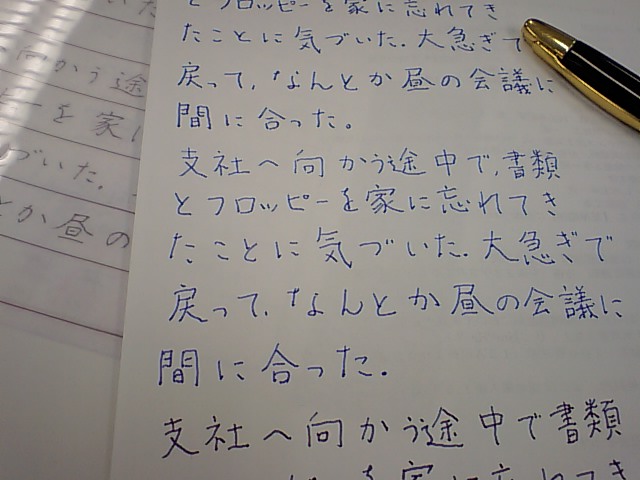 とフロッピーを家に忘れてき
たことに気づいた.大急ぎで
戻って,なんとか昼の会議に
間に合った。
支社へ向かう途中で,書類
とフロッピーを家に忘れてき
たことに気づいた.大急ぎで
戻って,なんとか昼の会議に
間に合った.
支社へ向かう途中で書類
を家に忘れてき
いた
向かう途
ーを家に
づいた.
とか昼の